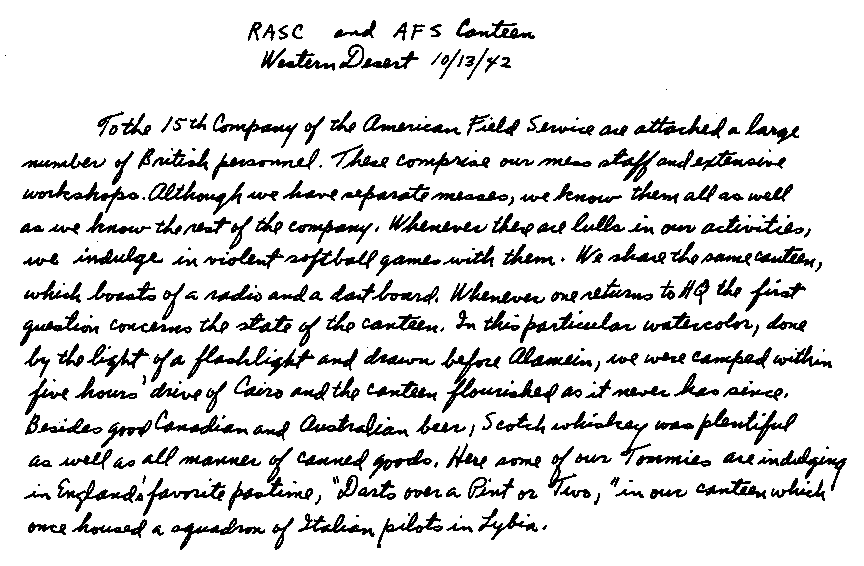 RASC and AFS Canteen
Western Desert 10/13/42
To the 15th Company of the American Field Service are attached a large
number of British personnel. These comprise our mess staff and extensive
workshops. Although we have separate messes, we know them all as well
as we know the rest of the company. Whenever there are lulls in our activities,
we indulge in violent softball games with them. We share the same canteen,
which boasts of a radio and a dart board. Whenever one returns to HQ the first
question concerns the state of the canteen. In this particular watercolor, done
by the light of a flashlight and drawn before Alamein, we were camped within
five hours' drive of Cairo and the canteen flourished as it never has since.
Besides good Canadian and Australian beer, Scotch whiskey was plentiful
as well as all manner of canned goods. Here some of our Tommies are indulging
in England's favorite pastime, "Darts over a Pint or Two," in our canteen which
once housed a squadron of Italian pilots in Lybia.